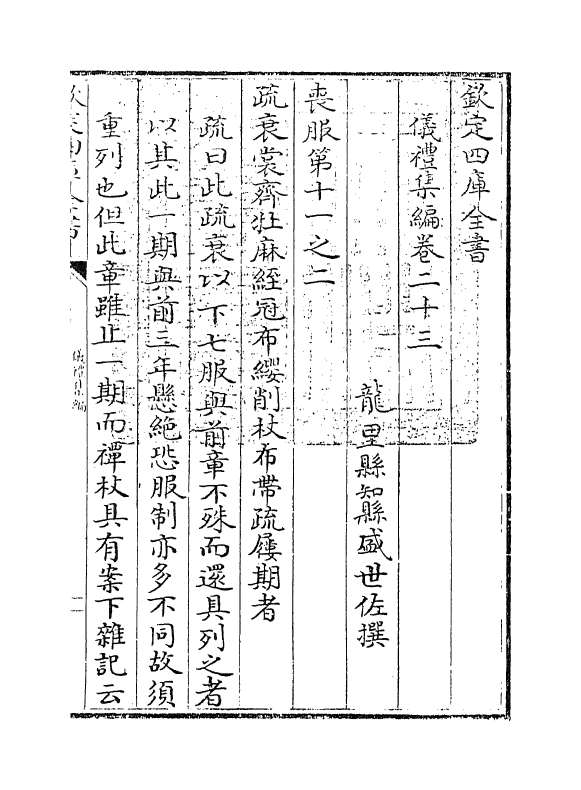 欽定四庫全書
儀禮集編卷二十三
龍里縣知縣盛世佐撰
喪服第十一之二
疏衰裳齊牡麻絰冠布纓削杖布帶疏屨期者
疏曰此疏衰以下七服與前章不殊而還具列之者
以其此一期與前三年懸絶恐服制亦多不同故須
重列也但此章雖止一期而禫杖具有案下雜記云
儀禮集編